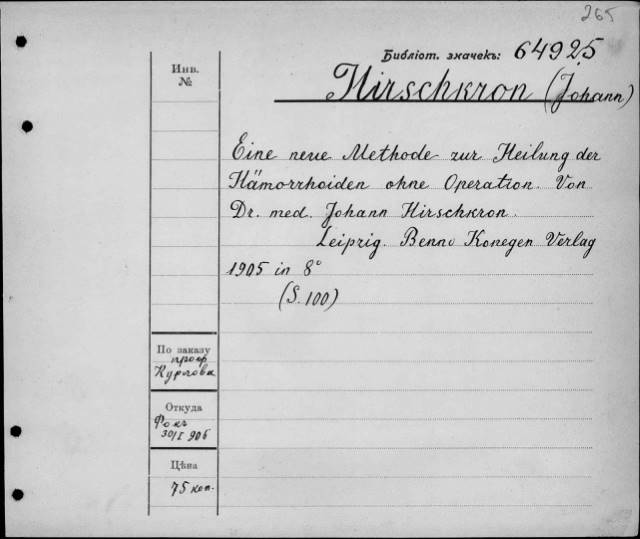 265
Библіот. значекъ: 64925
Инв.
№
Hirschkron (Johann)
Eine neue Methode zur Heilung der
Hämorrhoiden ohne Operation. Von
Dr. med. Johann Hirschkron.
Leipzig. Benno Konegen Verlag
1905 in 8°
(S. 100)
По заказу
проф
Курлова
Откуда
Фокъ
30/I 906
Цѣна
75 коп.